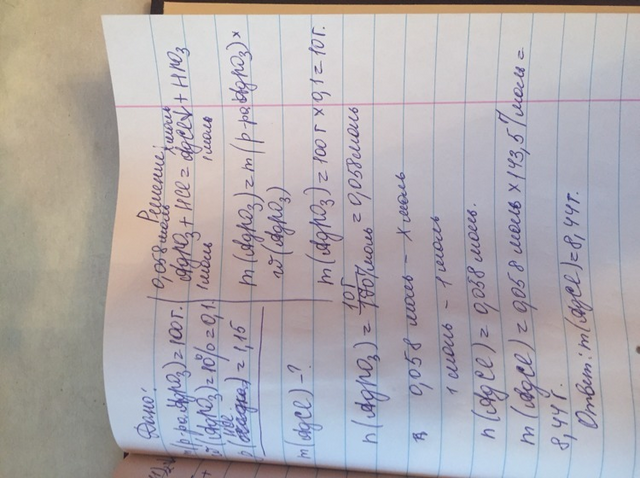 Дано:
m(р-ра AgPO3)=100г.
w(AgPO3)=10%=0,1.
=1,15
m(AgCl)-?
Решение:
0,058моль x моль
AgPO3 + HCl = AgCl↓ + HPO3
1моль 1моль
m(AgPO3)=m(р-ра AgPO3)×
w(AgPO3)
m(AgPO3)=100г×0,1=10г.
n(AgPO3)=10г/моль=0,058моль
0,058 моль – x моль
1 моль – 1 моль
n(AgCl)=0,058 моль.
m(AgCl)=0,058 моль×143,5г/моль=
8,44г.
Ответ: m(AgCl)=8,44г.